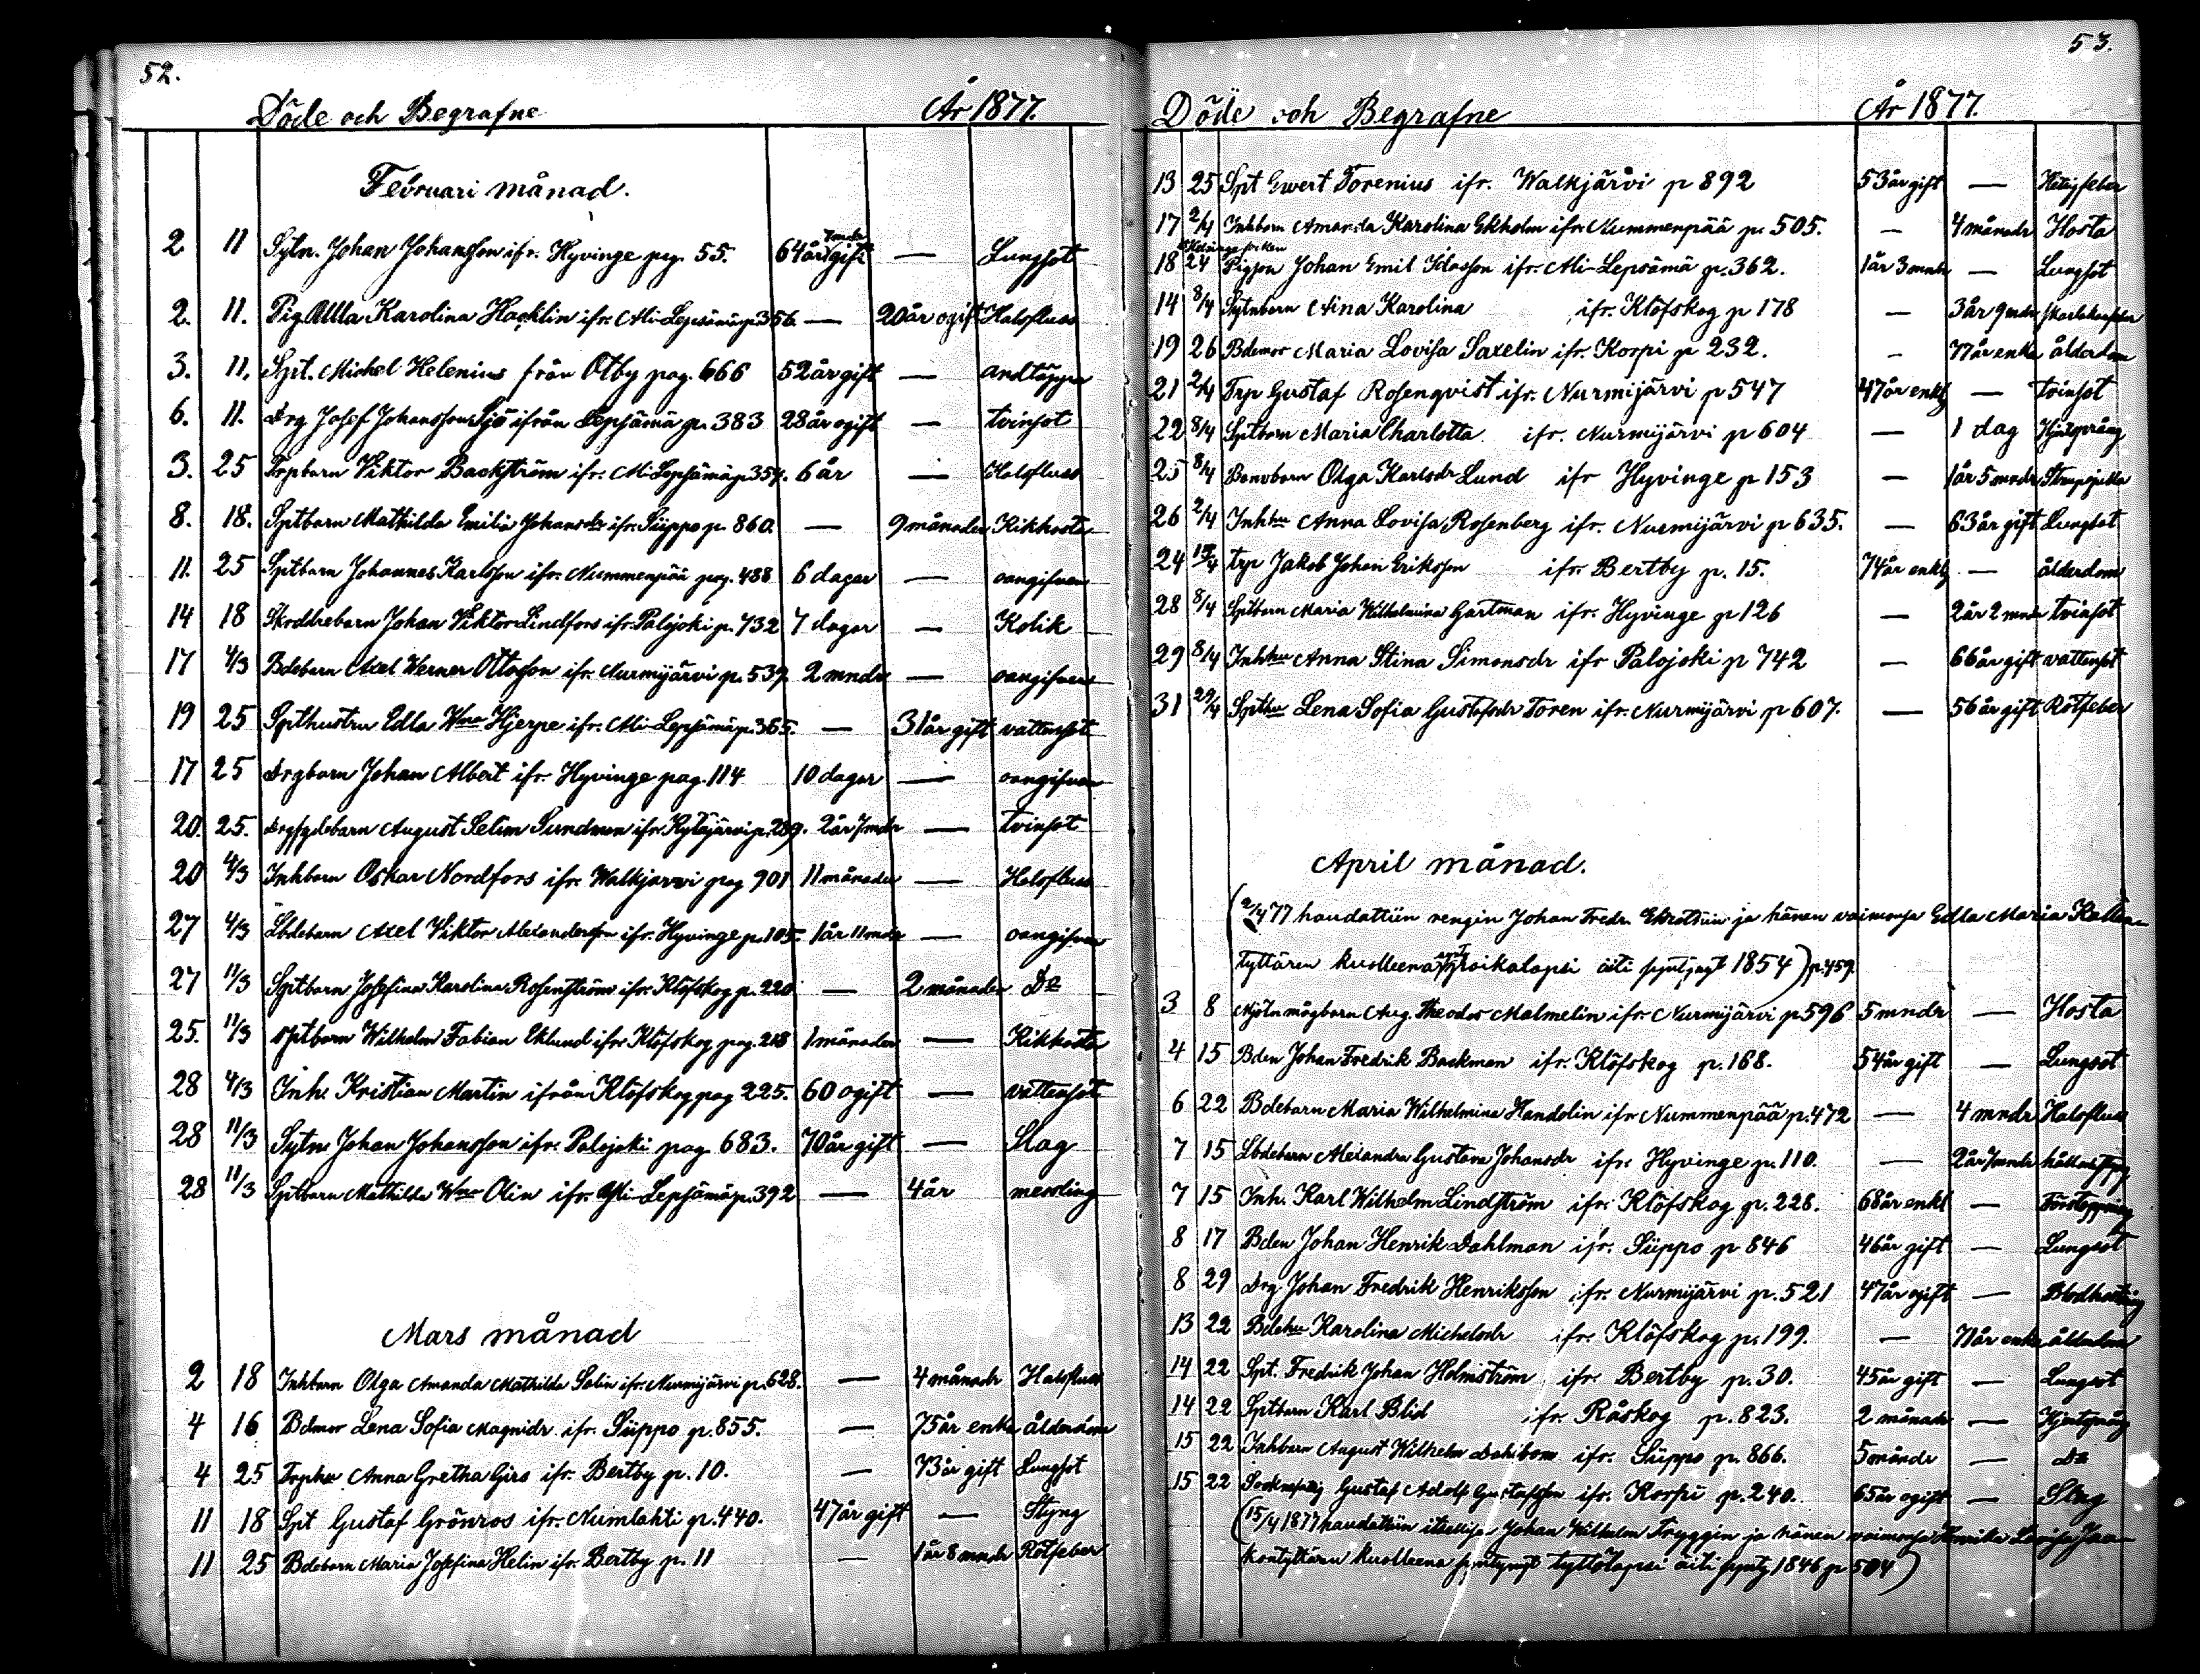 52.
Döde och Begrafne År 1877.
Februari månad.
2 11 Sytn. Johan Johansson ifr. Hyvinge pag. 55. 64 år 7 mndr gift — Lungsot
2. 11. Pig. Ulla Karolina Hacklin ifr. Ali-Lepsämä p. 356 — 20 år ogift Halsfluss
3. 11. Spt. Michel Helenius från Otby pag. 666 52 år gift — andtäppa
6. 11. Drg Josef Johansson Sjö ifrån Lepsämä p. 383 28 år ogift — tvinsot
3. 25 Trpbarn Viktor Backström ifr. Ali-Lepsämä p. 354. 6 år — Halsfluss
8. 18. Sptbarn Mathilda Emilia Johansdr ifr. Süppo p. 860. — 9 månader Kikhosta
11. 25 Sptbarn Johannes Karlsson ifr. Nummenpää pag. 488 6 dagar — oangifven
14 18 Skräddrebarn Johan Viktor Lindfors ifr. Palojoki p. 732 7 dagar — Kolik
17 4/3 Bdebarn Axel Werner Ottosson ifr. Nurmijärvi p. 539 2 mndr — oangifven
19 25 Spthustru Edla Wma Hjerpe ifr. Ali-Lepsämä p. 365. — 31 år gift vattusot
17 25 Drgbarn Johan Albert ifr. Hyvinge pag. 114 10 dagar — oangifven
20. 25. August Selim Sundman ifr. Kytäjärvi p. 289. 2 år 7 mdr — tvinsot
20 4/3 Inhbarn Oskar Nordfors ifr. Walkjarvi pag 901 11 månader — Halsfluss
27 4/3 Lbdebarn Axel Viktor Alexandersson ifr. Hyvinge p. 105. 1 år 11 mndr — oangifven
27 11/3 Sptbarn Josefina Karolina Rosenström ifr. Klöfskog p. 220 — 2 månader Do
25. 11/3 Sptbarn Wilhelm Fabian Eklund ifr. Klöfskog pag. 218 1 månader — Kikhosta
28 4/3 Inh. Kristian Martin ifrån Klöfskog pag 225. 60 ogift — vattusot
28 11/3 Sytn Johan Johansson ifr. Palojoki pag. 683. 70 år gift — Slag
28 11/3 Sptbarn Mathilda Wma Olin ifr. Ali-Lepsämä p. 392 — 4 år messling
Mars månad
2 18 Inhbarn Olga Amanda Mathilda Salin ifr. Nurmijärvi p. 628. — 4 månadr Halsfluss
4 16 Bdmor Lena Sofia Magnidr ifr. Süppo p. 855. — 75 år enka ålderdom
4 25 Trphu Anna Gretha Girs ifr. Bertby p. 10. — 73 år gift Lungsot
11 18 Spt Gustaf Grönros ifr. Numlahti p. 440. 47 år gift — Styng
11 25 Bdebarn Maria Josefina Helin ifr. Bertby p. 11 — 1 år 8 mndr Rötfeber
53.
Döde och Begrafne År 1877.
13 25 Spt Ewert Torenius ifr. Walkjärvi p 892 53 år gift — Hetsigfeber
17 2/4 Inhbarn Amanda Karolina Ekholm ifr. Nummenpää p. 505. — 4 månadr Hosta
18 24 Pigson Johan Emil Idasson ifr. Ali-Lepsämä p. 362. 1 år 3 mndr — Lungsot
14 8/4 Sytnbarn Aina Karolina ifr. Klöfskog p 178 — 3 år 9 mdr
19 26 Bdemor Maria Lovisa Saxelin ifr. Korpi p 232. — 77 år enka ålderdom
21 2/4 Trp Gustaf Rosenqvist ifr. Nurmijärvi p 547 47 år enkl — tvinsot
22 8/4 Sptbarn Maria Charlotta ifr. Nurmijärvi p 604 — 1 dag Hjertsprång
25 8/4 Olga Karlsdr Lund ifr Hyvinge p 153 — 1 år 5 mndr Strupsjuka
26 2/4 Inhhu Anna Lovisa Rosenberg ifr. Nurmijärvi p 635. — 63 år gift Lungsot
24 15/4 trp Jakob Johan Eriksson ifr. Bertby p. 15. 74 år enkl — ålderdom
28 8/4 Sptbarn Maria Wilhelmina Gartman ifr. Hyvinge p 126 — 2 år 2 mndr tvinsot
29 8/4 Inhhu Anna Stina Simonsdr ifr Palojoki p 742 — 66 år gift vattusot
31 29/4 Spthu Lena Sofia Gustafsdr Toren ifr. Nurmijärvi p 607. — 56 år gift Rötfeber
April månad.
(2/4 77 haudattiin rengin Johan Fredr. Ekrothin ja hänen vaimonsa Edla Maria
tyttären kuolleena synt. poikalapsi äiti syntynyt 1854) p. 459
3 8 Aug. Theodor Malmelin ifr. Nurmijärvi p 596 5 mndr — Hosta
4 15 Bden Johan Fredrik Backman ifr. Klöfskog p. 168. 54 år gift — Lungsot
6 22 Bdebarn Maria Wilhelmina Handolin ifr Nummenpää p. 472 — 4 mndr Halsfluss
7 15 Lbdebarn Alexandra Gustava Johansdr ifr. Hyvinge p. 110. — 2 år 7 mndr
7 15 Inh. Karl Wilhelm Lindström ifr. Klöfskog p. 228. 68 år enkl — Förstoppning
8 17 Bden Johan Henrik Dahlman ifr. Süppo p 846 46 år gift — Lungsot
8 29 Drg Johan Fredrik Henriksson ifr. Nurmijärvi p. 521 47 år ogift — Blodhostning
13 22 Bdehu Karolina Michelsdr ifr. Klöfskog p. 199. — 71 år enka ålderdom
14 22 Spt. Fredrik Johan Holmström ifr Bertby p. 30. 45 år gift — Lungsot
14 22 Sptbarn Karl Blid ifr. Råskog p. 823. 2 månadr — Hjertsprång
15 22 Inhbarn August Wilhelm Dahlbom ifr. Süppo p. 866. 5 mändr — Do
15 22 Gustaf Adolf Gustafsson ifr. Korpi p. 240. 65 år ogift — Slag
(15/4 1877 haudattiin itsellisen Johan Wilhelm Tryggin ja hänen vaimonsa Henrika Lovisa Isaa-
kontyttären kuolleena syntynyt tyttölapsi äiti synt. 1846 p 504)